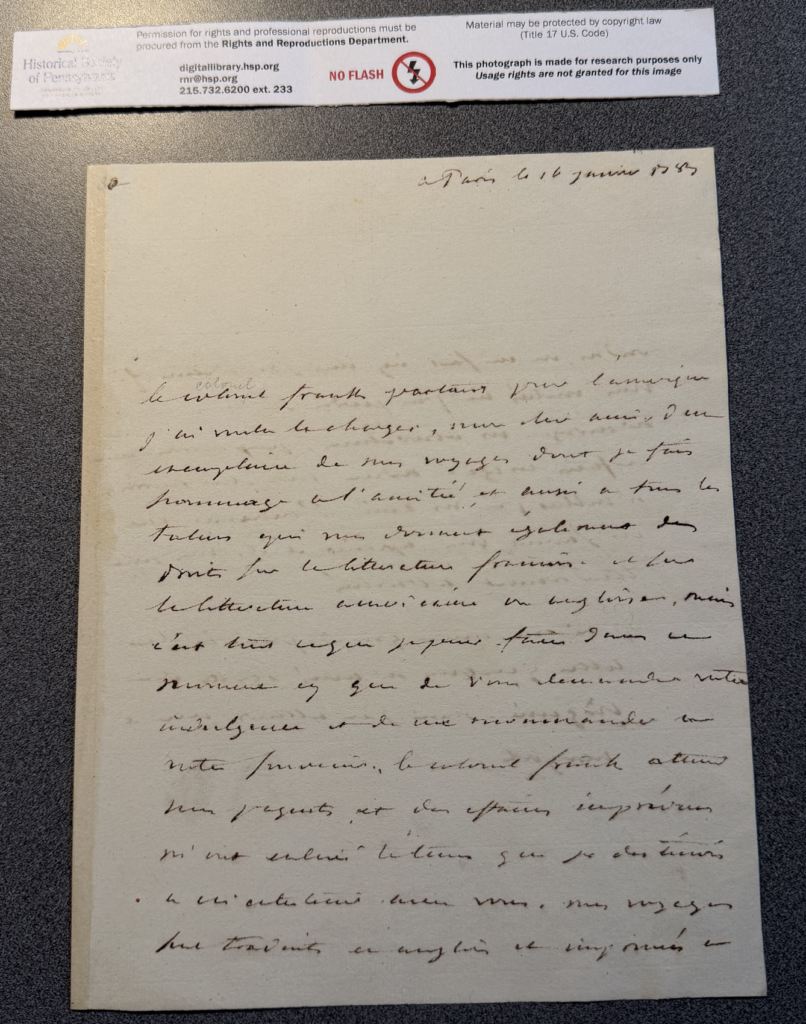 Historical Society
of Pennsylvania
Permission for rights and professional reproductions must be
procured from the Rights and Reproductions Department.
digitallibrary.hsp.org
rnr@hsp.org
215.732.6200 ext. 233
NO FLASH
Material may be protected by copyright law
(Title 17 U.S. Code)
This photograph is made for research purposes only
Usage rights are not granted for this image
a Paris le 16 janvier
colonel
le colonel franks partant pour l'amerique
j'ai voulu le charger, mon cher ami, d'un
exemplaire de mes voyages dont je fais
hommage a l'amitié, et aussi a tous les
talens qui vous donnent également des
droits sur la litterature françoise et sur
la litterature americaine ou angloise, mais
c'est tout ce que je puis faire dans ce
moment cy que de vous demander votre
indulgence et de me recommander a
votre souvenir. le colonel franks attend
mes paquets et des affaires imprévues
m'ont enlevé le tems que je destinois
a avec vous. mes voyages
sont traduits en anglois et imprimés a